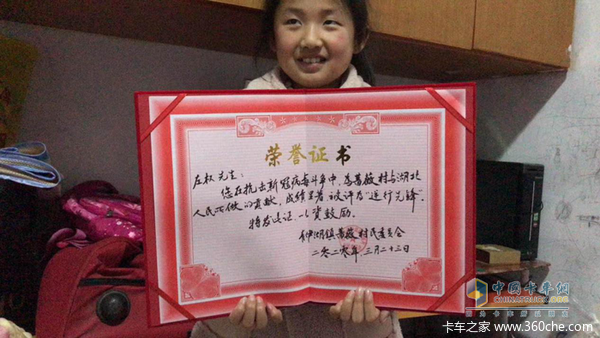 荣誉证书
左权先生:
您在抗击新冠病毒斗争中,为薇村与湖北
人民所做的贡献,成绩显著被评为"逆行先锋".
特发此证,以资鼓励.
湖镇薇村民委员会
二〇二〇年三月二十三日
中国卡车网
CHINATRUCK.ORG
卡车之家 www.360che.com